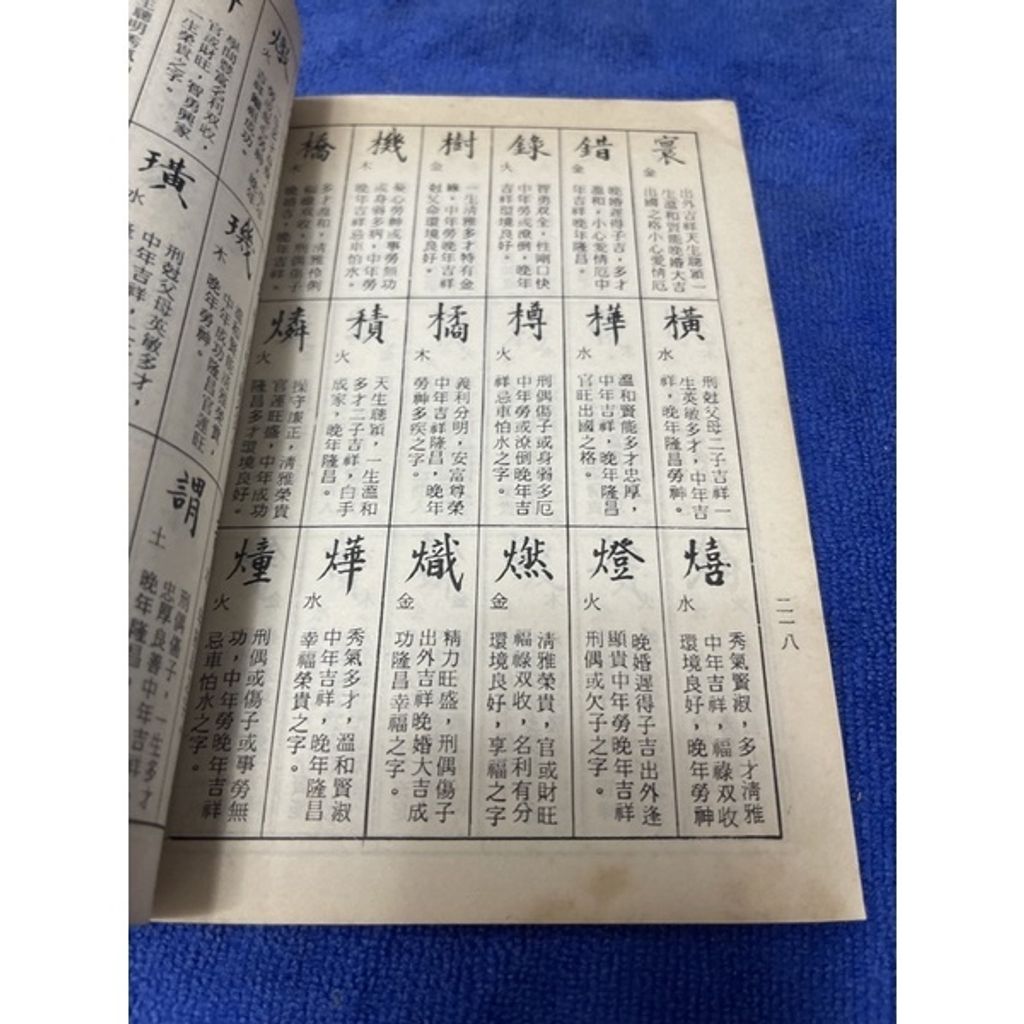 寰
金
出外吉祥天生聰穎一
生溫和賢能晚婚大吉
出國之格小心愛情厄
錯
金
晚婚遲得子吉，多才
溫和，小心愛情厄中
年吉祥晚年隆昌。
錄
火
智勇双全，性剛口快
中年勞或潦倒，晚年
吉祥環境良好。
樹
金
一生清雅多才特有金
緣，中年勞晚年吉祥
尅父命環境良好。
機
木
憂心勞神或事勞無功
或身弱多病，中年勞
晚年吉祥忌車怕水。
橋
木
多才溫和，清雅伶俐
福祿双收，刑偶傷子
晚婚吉，晚年吉祥。
橫
水
刑尅父母二子吉祥一
生英敏多才，中年吉
祥，晚年隆昌勞神。
樺
水
溫和賢能多才忠厚，
中年吉祥，晚年隆昌
官旺出國之格。
樽
火
刑偶傷子或身弱多厄
中年勞或潦倒晚年吉
祥忌車怕水之字。
橘
木
義利分明，安富尊榮
中年吉祥隆昌，晚年
勞神多疾之字。
積
火
天生聰穎，一生溫和
多才二子吉祥，白手
成家，晚年隆昌。
燐
火
操守廉正，清雅榮貴
官運旺盛，中年成功
隆昌多才環境良好。
熺
水
秀氣賢淑，多才清雅
中年吉祥，福祿双收
環境良好，晚年勞神
燈
火
晚婚遲得子吉出外逢
顯貴中年勞晚年吉祥
刑偶或欠子之字。
燃
金
清雅榮貴，官或財旺
福祿双收，名利有分
環境良好，享福之字
熾
金
精力旺盛，刑偶傷子
出外吉祥晚婚大吉成
功隆昌幸福之字。
燁
水
秀氣多才，溫和賢淑
中年吉祥，晚年隆昌
幸福榮貴之字。
燑
火
刑偶或傷子或事勞無
功，中年勞晚年吉祥
忌車怕水之字。
二一八
火
學問豐富名利双收，
官或財旺，智勇興家
一生榮貴之字。
璣
木
中年成功隆昌官運旺
晚年勞神。
璜
水
刑尅父母英敏多才，
中年吉祥，
謂
土
刑偶傷子，一生多才
忠厚良善中年吉祥
晚年隆昌